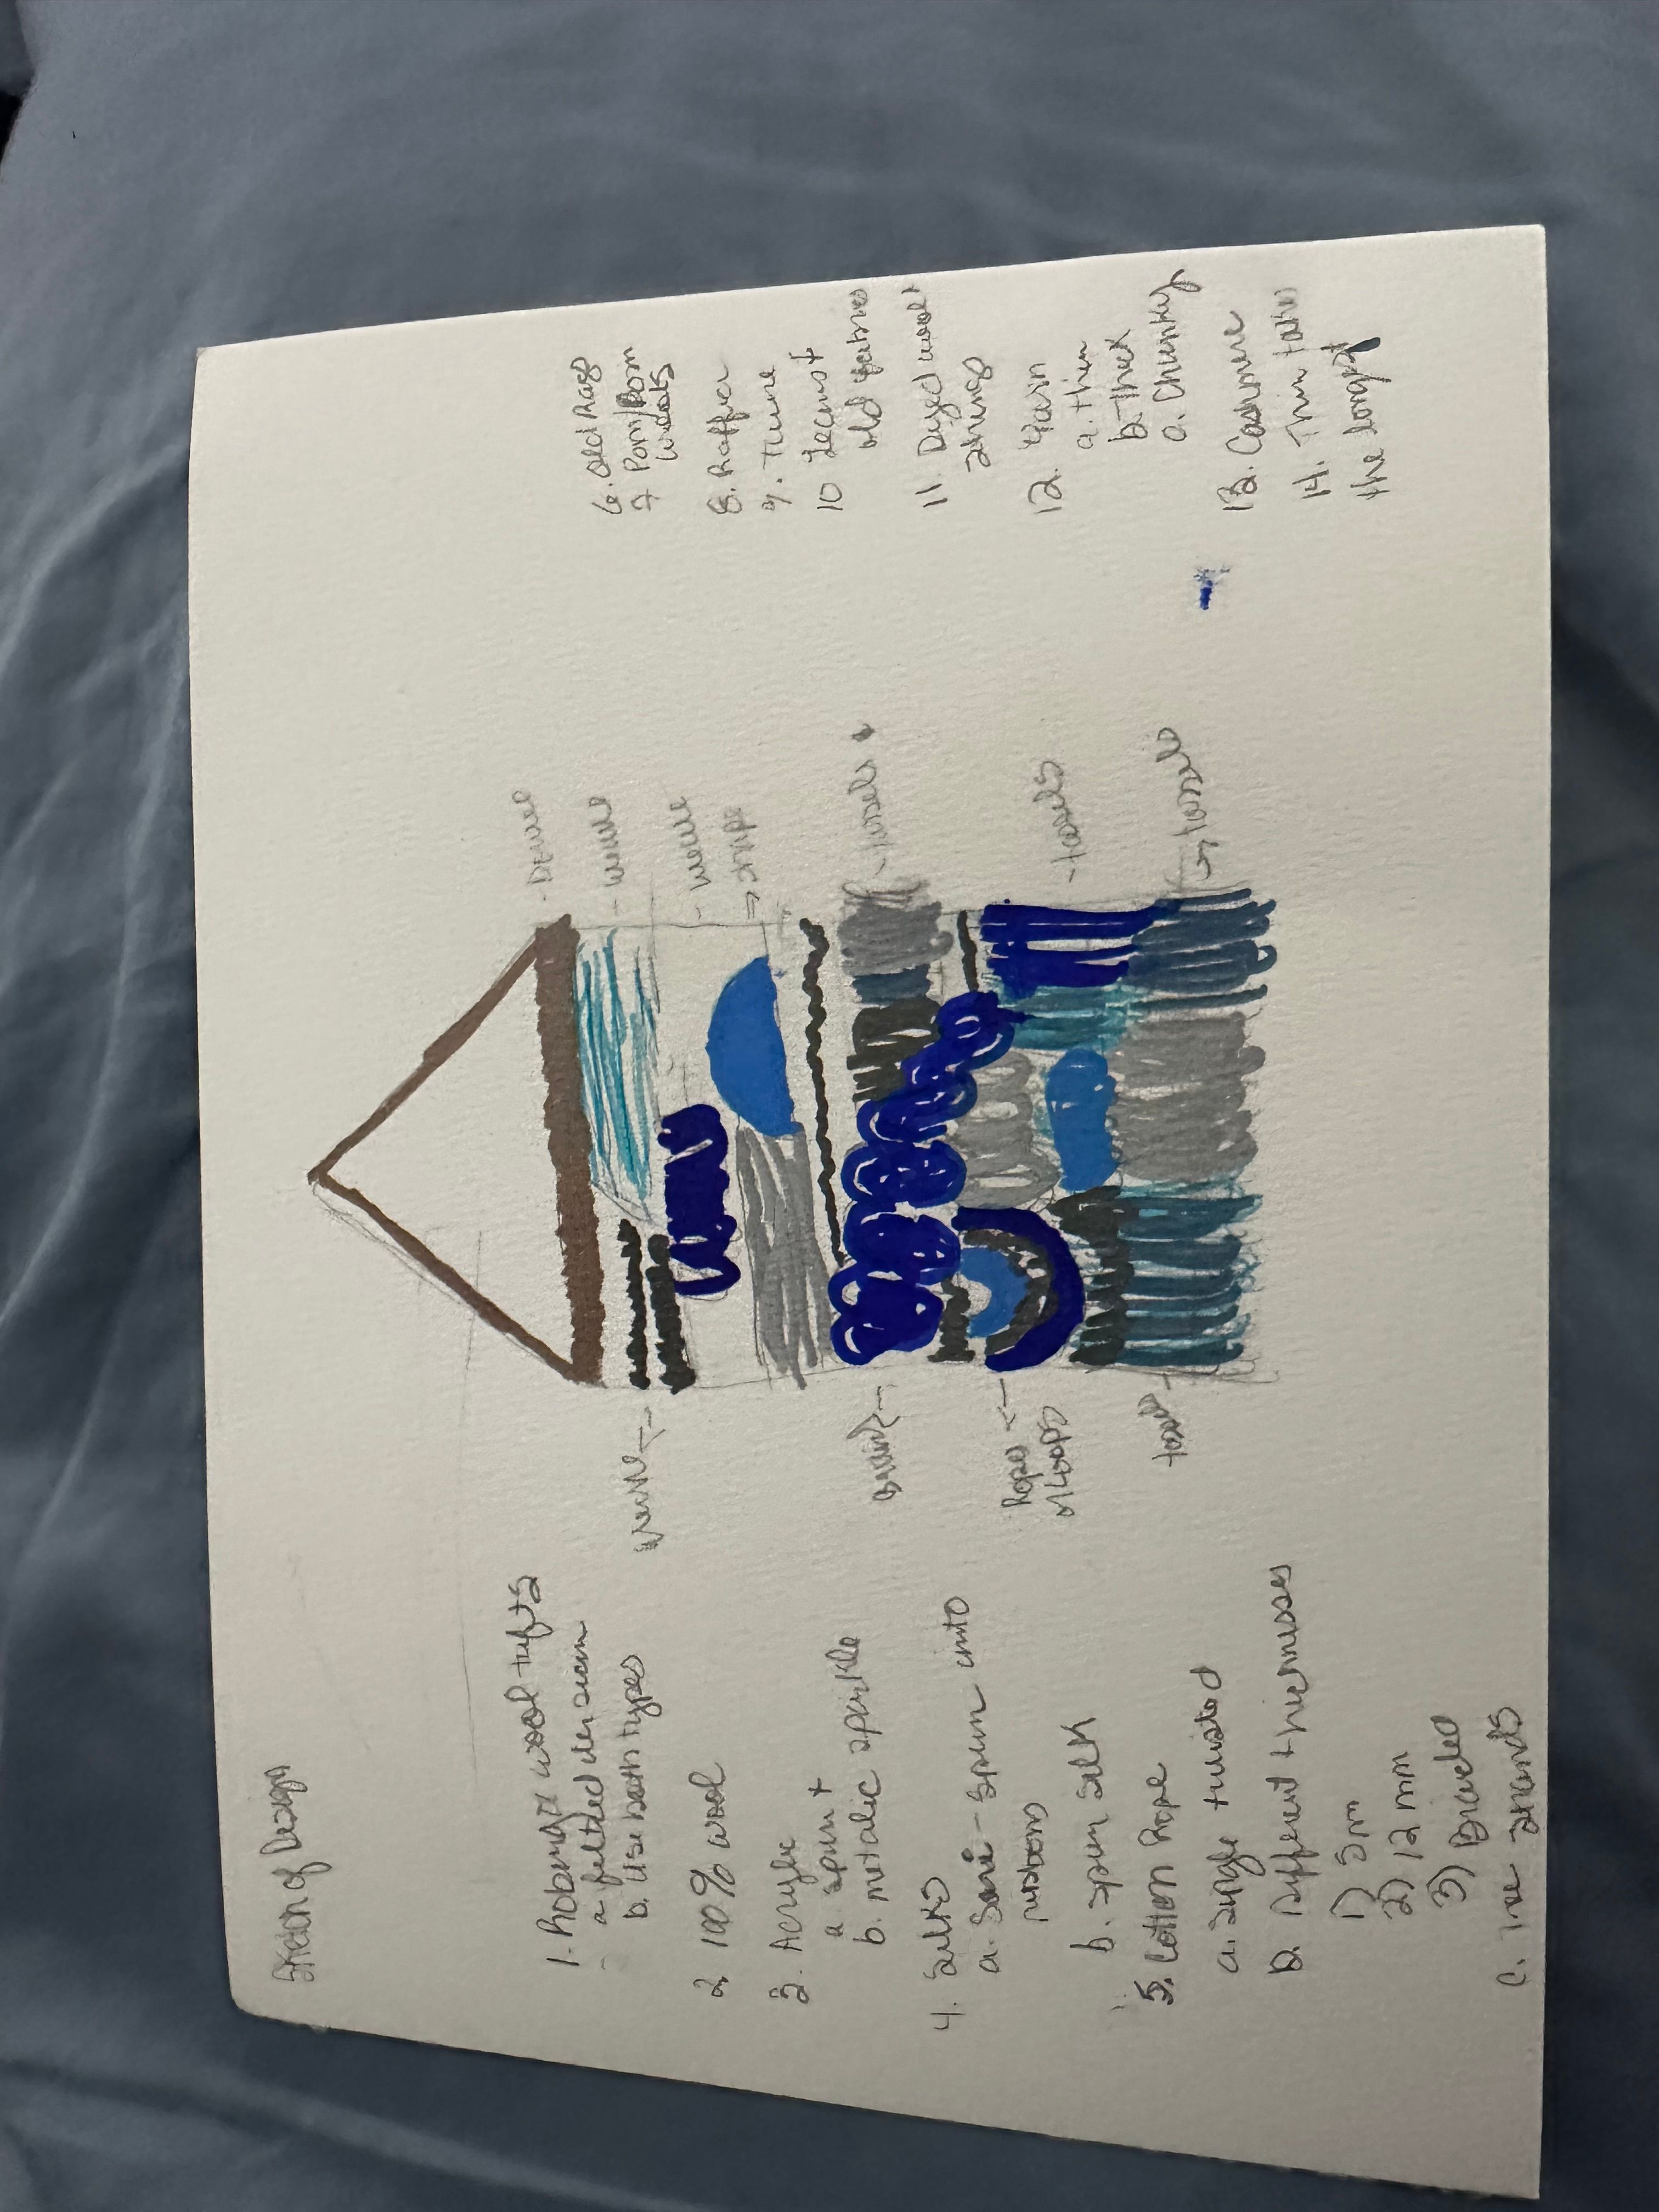 Sketch of Design
wool tufts
a felted
b. Use both types
2. 100% wool
3. Acrylic
a. spun +
b. metalic sparkle
4. Silks
a. Sari - spun into
b. spun silk
5. Cotton Rope
a. single twisted
b. Different thicknesses
1) 5m
2) 12 mm
3) Braided
c. strands
weave
Rope
tassels
weave
weave
tassels
tassels
tassels
6. old Rags
7 Pom/Pom
8. Raffia
9. Twine
10
old
11. Dyed wool
strings
12. Yarn
a. thin
b. Thick
a. Chunky
13. Cashmere
14.
the longest